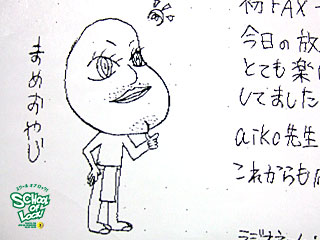 まめおやじ
初FAX
今日の放
とても楽し
してました
aiko先生
これからも
スクール オブ ロック!
SCHOOL OF LOCK!